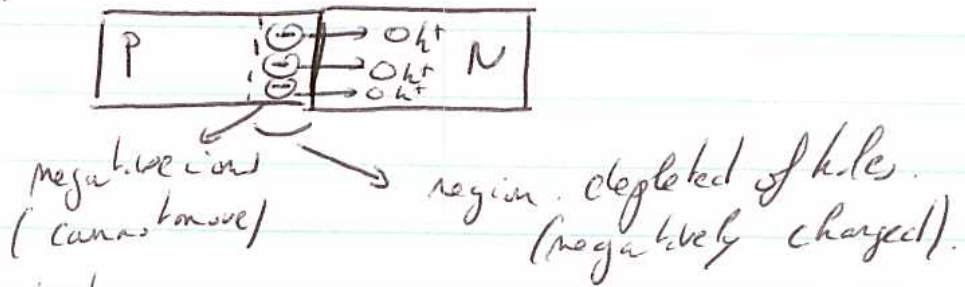 P N
⊖ → O h⁺
⊖ → O h⁺
⊖ → O h⁺
negative ions
(cannot move)
region depleted of holes.
(negatively charged).